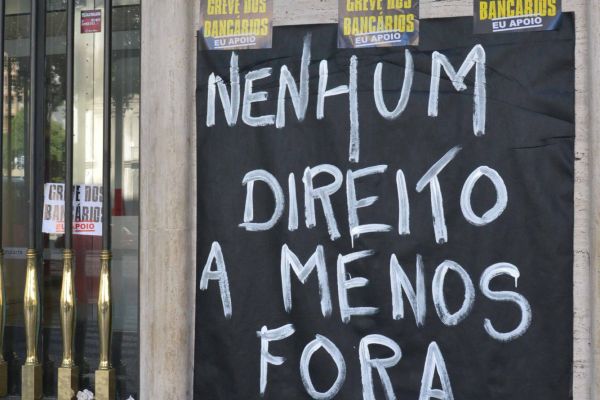 GREVE DOS
BANCÁRIOS
EU APOIO
GREVE DOS
BANCÁRIOS
EU APOIO
BANCÁRIOS
EU APOIO
NENHUM
DIREITO
A MENOS
FORA
GREVE DOS
BANCÁRIOS
EU APOIO